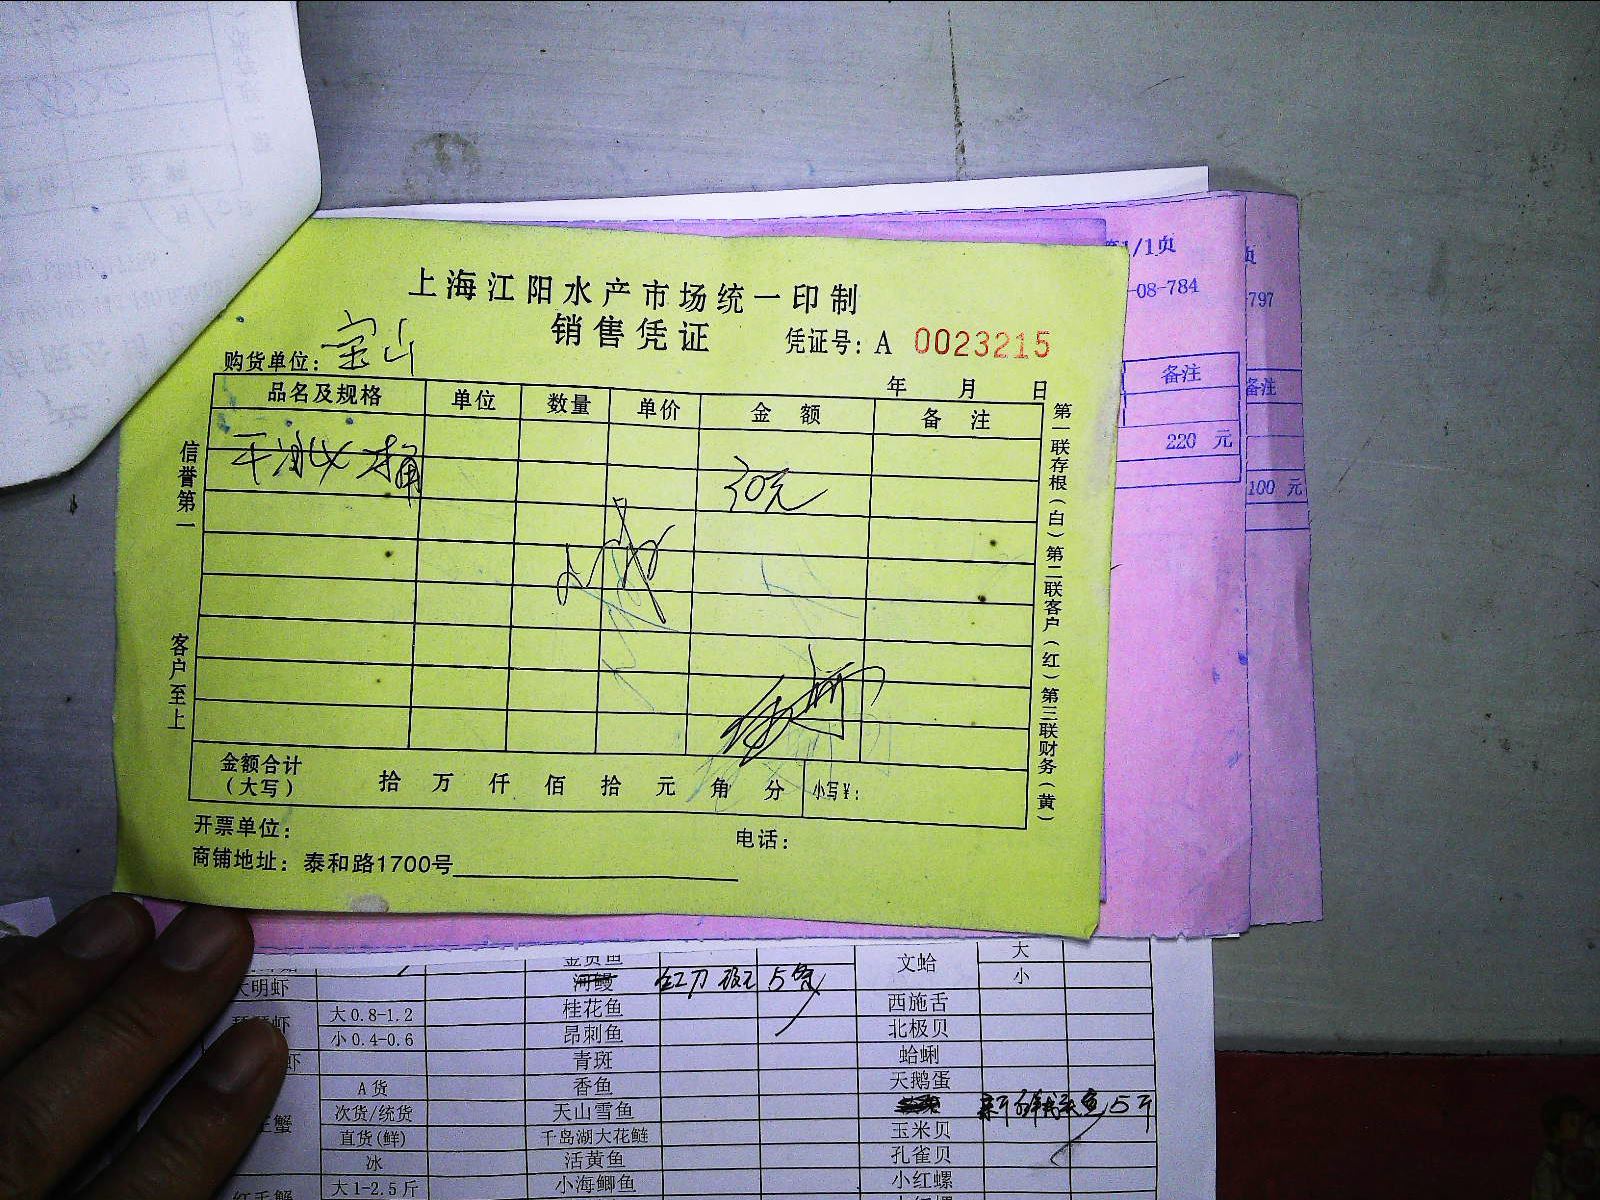 上海江阳水产市场统一印制
销售凭证
凭证号：A 0023215
购货单位：宝山
年 月 日
品名及规格 单位 数量 单价 金额 备注
干冰 桶 30元
信誉第一
客户至上
第一联存根（白）第二联客户（红）第三联财务（黄）
金额合计（大写） 拾 万 仟 佰 拾 元 角 分 小写¥：
开票单位： 电话：
商铺地址：泰和路1700号
1/1页
-08-784
备注
220 元
页
797
备注
100 元
金贡鱼 文蛤 大
大明虾 河鳗 红刀 5条 小
大0.8-1.2 桂花鱼 西施舌
小0.4-0.6 昂刺鱼 北极贝
虾 青斑 蛤蜊
A货 香鱼 天鹅蛋
蟹 次货/统货 天山雪鱼 新鲜 鱼5斤
直货(鲜) 千岛湖大花鲢 玉米贝
冰 活黄鱼 孔雀贝
大1-2.5斤 小海鲫鱼 小红螺